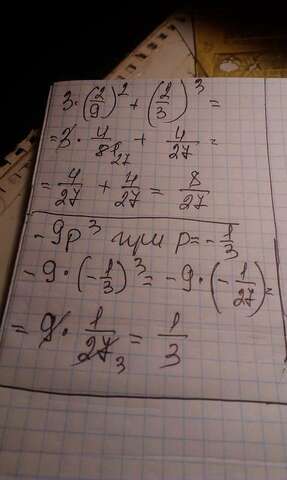 3·(2/9)² + (2/3)³ =
= 3 · 4/81 27 + 4/27 =
= 4/27 + 4/27 = 8/27
-9p³ при p = -1/3
-9 · (-1/3)³ = -9 · (-1/27) =
= 9 · 1/27 3 = 1/3